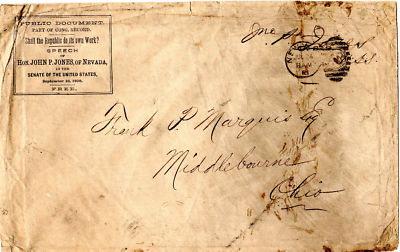 PUBLIC DOCUMENT.
PART OF CONG. RECORD.
Shall the Republic do its own Work?
SPEECH
OF
HON. JOHN P. JONES, OF NEVADA,
IN THE
SENATE OF THE UNITED STATES,
FREE.
Jno P.
NEW
Frank P. Marquis Esq
Middlebourne
Ohio